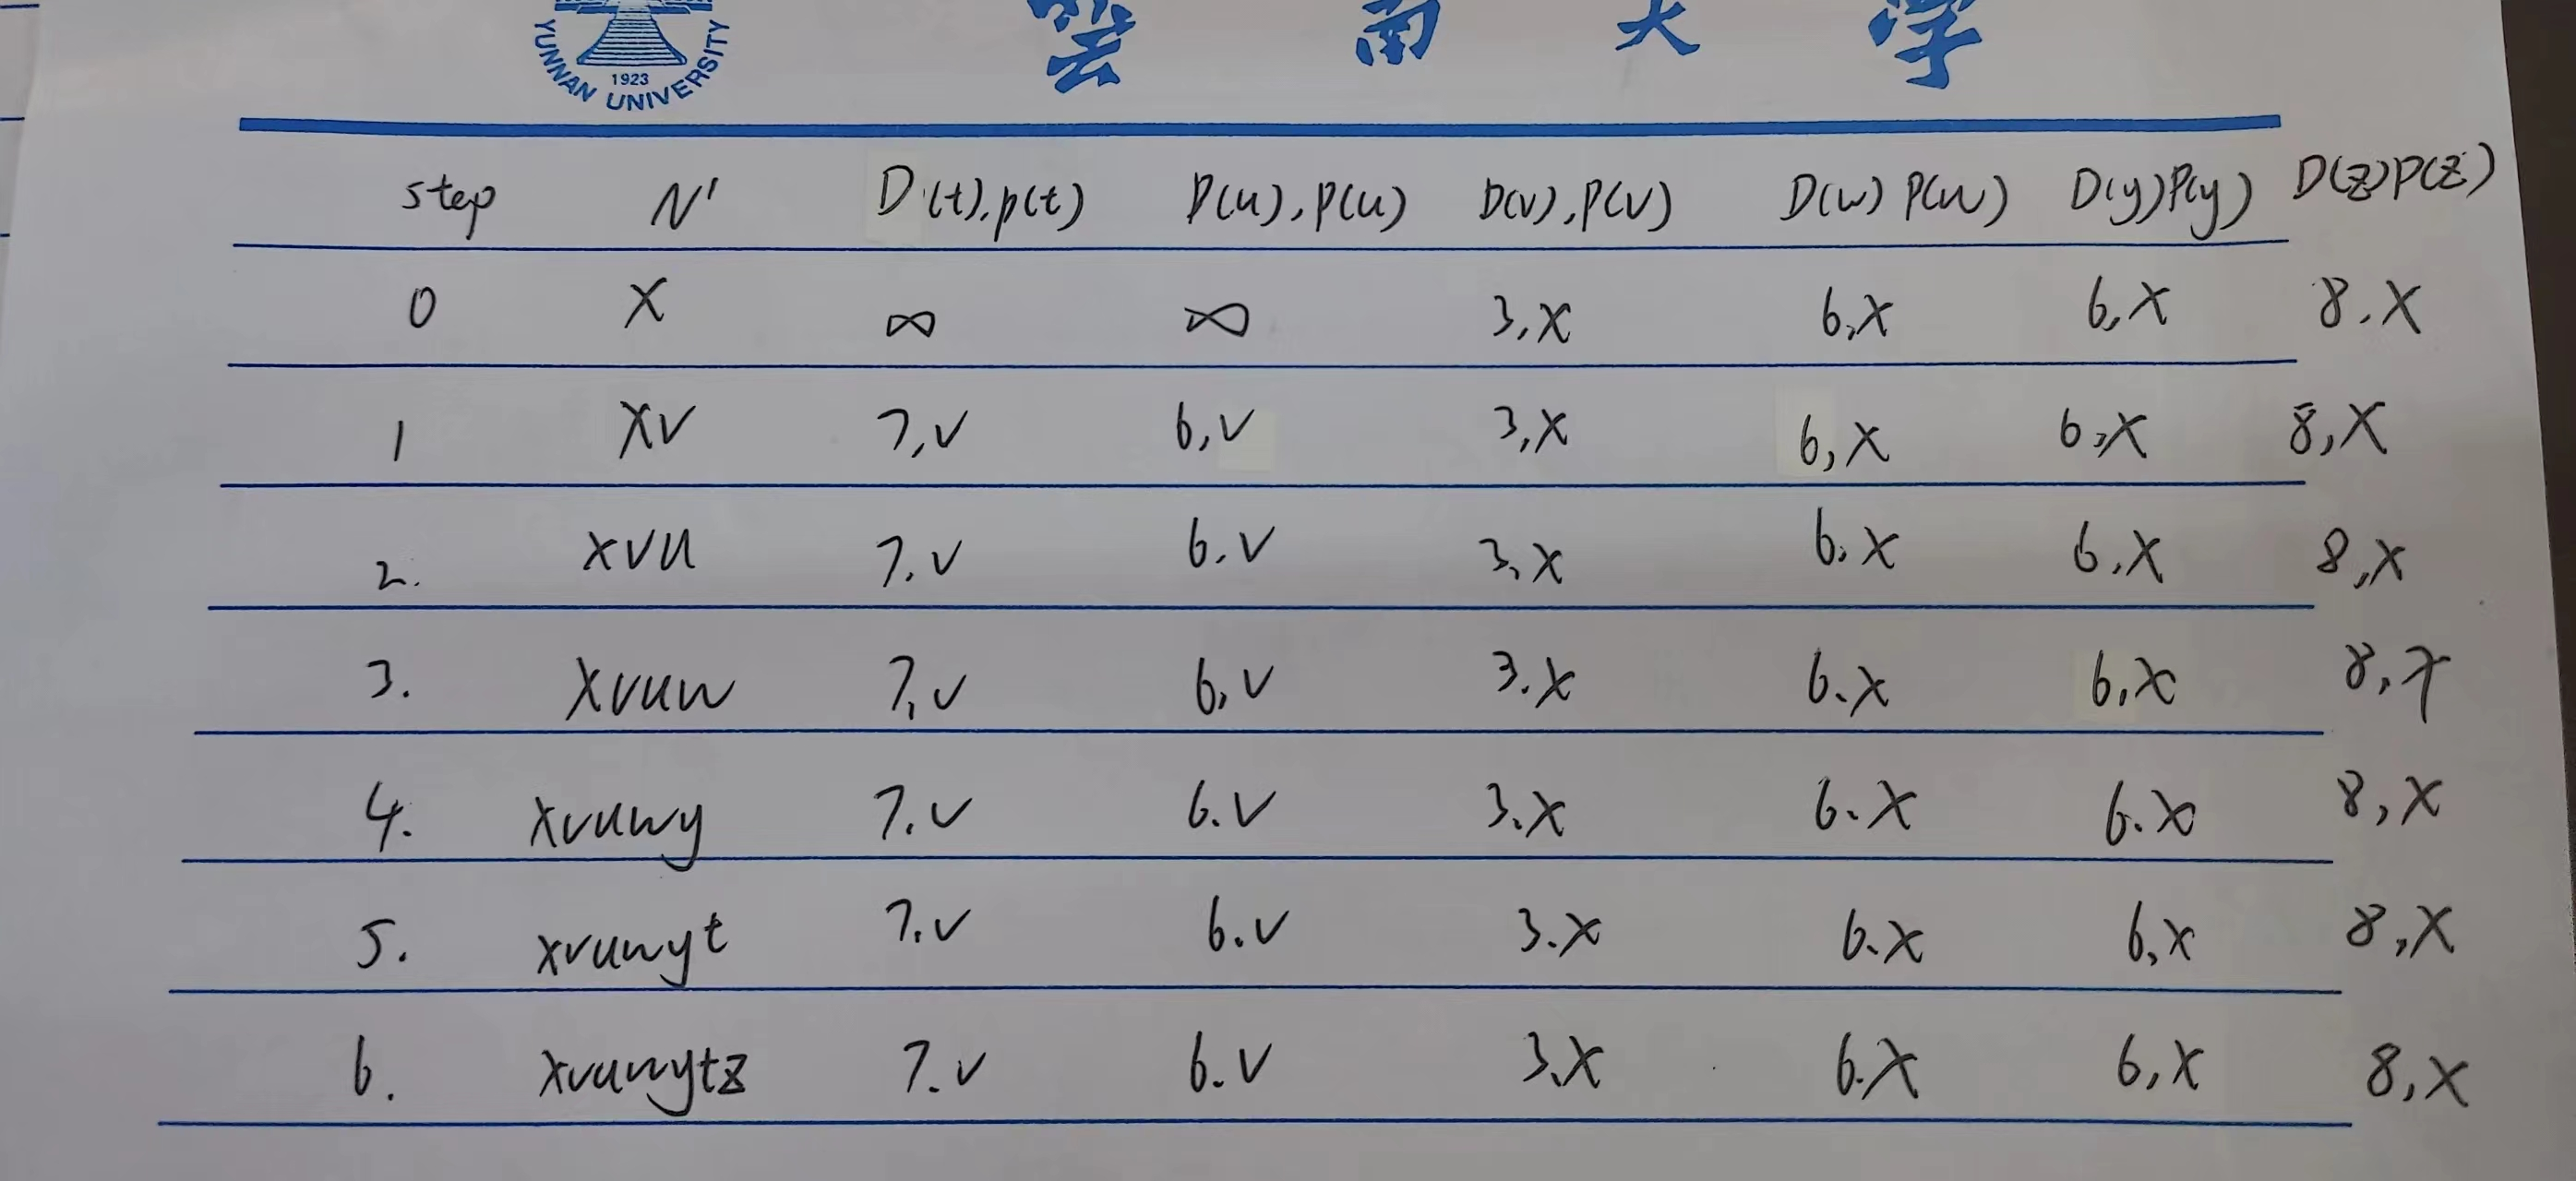 YUNNAN UNIVERSITY
1923
雲南大学
step N' D(t),p(t) D(u),P(u) D(v),P(v) D(w) P(w) D(y)P(y) D(z)P(z)
0 X ∞ ∞ 3,X 6,X 6,X 8,X
1 XV 7,V 6,V 3,X 6,X 6,X 8,X
2. XVU 7.V 6.V 3,X 6.X 6.X 8,X
3. XVUW 7,V 6,V 3.X 6.X 6,X 8,X
4. XVUWY 7.V 6.V 3.X 6.X 6.X 8,X
5. XVUWYt 7.V 6.V 3.X 6.X 6,X 8,X
6. XVUWYtz 7.V 6.V 3.X 6.X 6,X 8,X